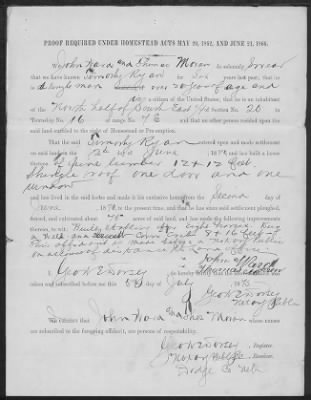 PROOF REQUIRED UNDER HOMESTEAD ACTS MAY 20, 1862, AND JUNE 21, 1866.
We, John Nara and Thomas Moran do solemnly swear
that we have known Timothy Ryan for Six years last past; that he
is a single man over 20 years of age and
a citizen of the United States; that he is an inhabitant
of the North half of South East 1/4 of section No. 20 in
Township No. 16 of range No. and that no other person resided upon
said land entitled to the right of Homestead or Pre-emption.
That the said Timothy Ryan entered upon and made settlement
on said land on the 2d of June, 1870 and has built a house
thereon of pine lumber 12 + 12 feet
Shingle roof one door and one
window
and has lived in the said house and made it his exclusive home from the Second day of
June, 1870 to the present time, and that he has since said settlement ploughed,
fenced, and cultivated about 75 acres of said land, and has made the following improvements
thereon, to wit: Built stables for eight horses Dug
a Well and Corn Crib 8 + 16 feet
This affidavit is made before a notary Public
on account of distance to Land Office
John Nara
Thomas Moran
I, Geo W E Dorsey do hereby
subscribed before me this 5th day of July 1875
Geo W E Dorsey
Notary Public
We certify that John Nara and Thos Moran whose names
are subscribed to the foregoing affidavit, are persons of respectability.
Geo W E Dorsey, Register.
Notary Public, Receiver.
Dodge Co Neb